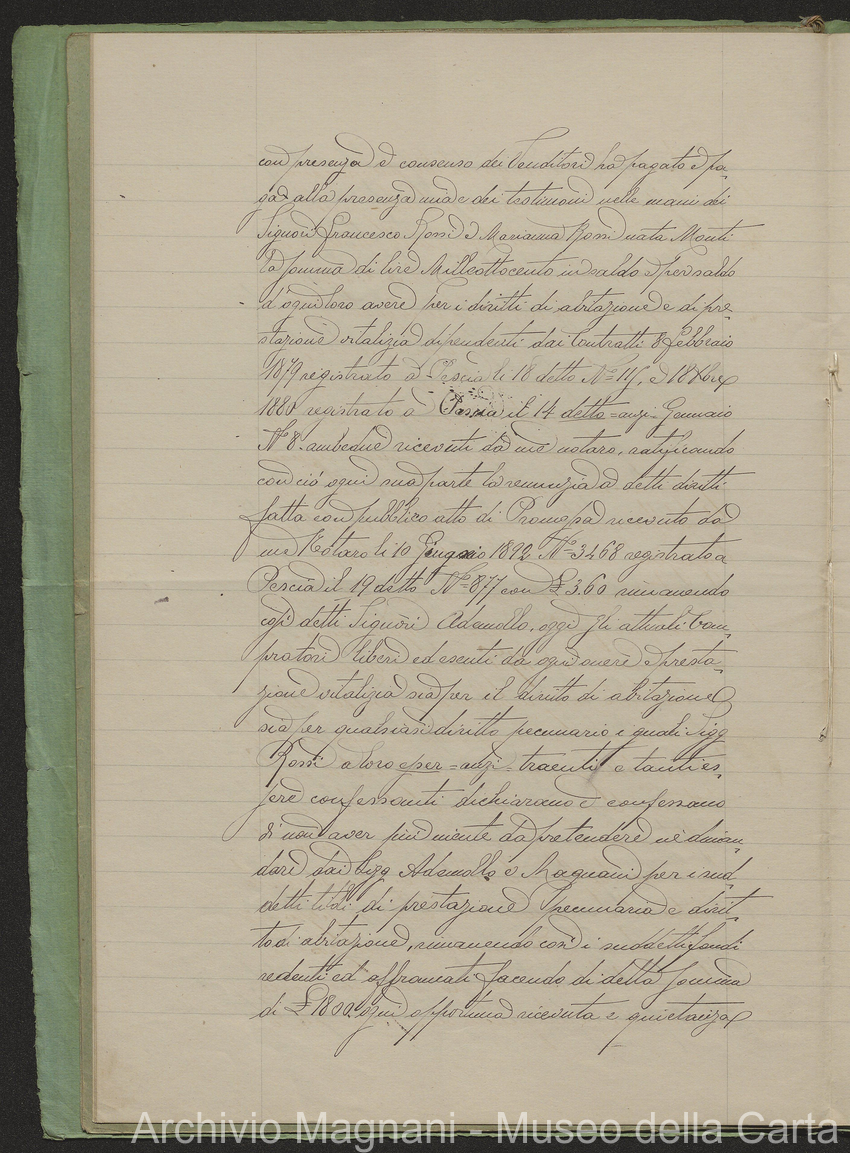 con presenza e consenso dei Venditori ha pagato e pa=
ga alla presenza mia e dei testimoni nelle mani dei
Signori Francesco Rossi e Marianna Rossi nata Monti
la somma di lire Milleottocento in saldo e per saldo
d'ogni loro avere per i diritti di abitazione e di pre=
stazione vitalizia dipendenti dai Contratti 8 febbraio
1879 registrato a Pescia li 18 detto Nº 115, e 18 Xbre
1880 registrato a Pescia il 14 detto = anzi = Gennaio
Nº 8. ambedue ricevuti da me notaro, ratificando
con ciò ogni sua parte la renunzia a detti diritti
fatta con pubblico atto di Promessa ricevuto da
me Notaro li 10 Giugno 1892 Nº 3468 registrato a
Pescia il 19 detto Nº 877 con £ 3.60 rimanendo
così detti Signori Ademollo, oggi gli attuali Com=
pratori liberi ed esenti da ogni onere e presta=
zione vitalizia sia per il diritto di abitazione
sia per qualsiasi diritto pecuniario i quali Sigg
Rossi a loro e per = anzi = traenti e tanti es=
sere confessanti dichiarano e confessano
di non aver più niente da pretendere nè diman=
dare dai Sigg Ademollo o Magnani per i sud=
detti titoli di prestazione pecuniaria e dirit=
to di abitazione, rimanendo così i suddetti fondi
redenti ed affrancati facendo di detta somma
di £ 1800. ogni opportuna ricevuta e quietanza
Archivio Magnani - Museo della Carta